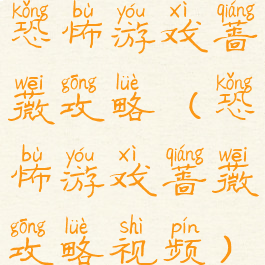 kǒng bù yóu xì qiáng
恐怖游戏蔷
wēi gōng lüè kǒng
薇攻略（恐
bù yóu xì qiáng wēi
怖游戏蔷薇
gōng lüè shì pín
攻略视频）